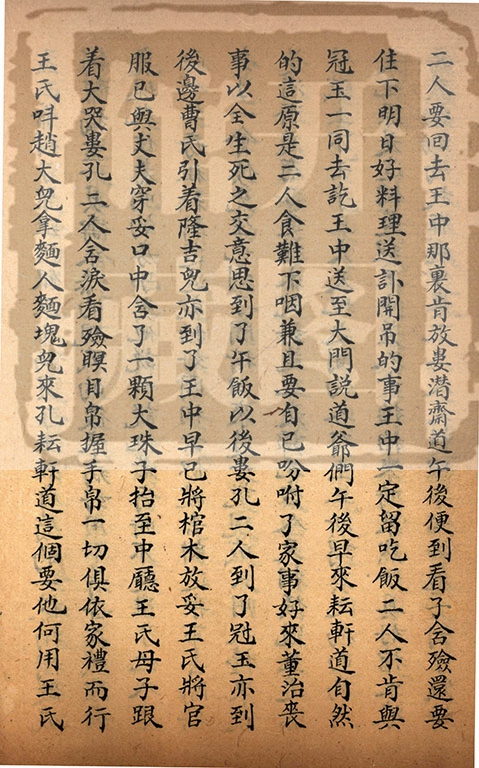 二人要回去王中那裏肯放婁潜齋道午後便到看了含殮還要
住下明日好料理送訃開吊的事王中一定留吃飯二人不肯與
冠玉一同去訖王中送至大門説道爺們午後早來耘軒道自然
的這原是二人食難下咽兼且要自已吩咐了家事好來董治喪
事以全生死之交意思到了午飯以後婁孔二人到了冠玉亦到
後邊曹氏引着隆吉兒亦到了王中早已將棺木放妥王氏將官
服已與丈夫穿妥口中含了一顆大珠子抬至中廳王氏母子跟
着大哭婁孔二人含淚看殮瞑目帛握手帛一切俱依家禮而行
王氏呌趙大兒拿麵人麵塊兒來孔耘軒道這個要他何用王氏